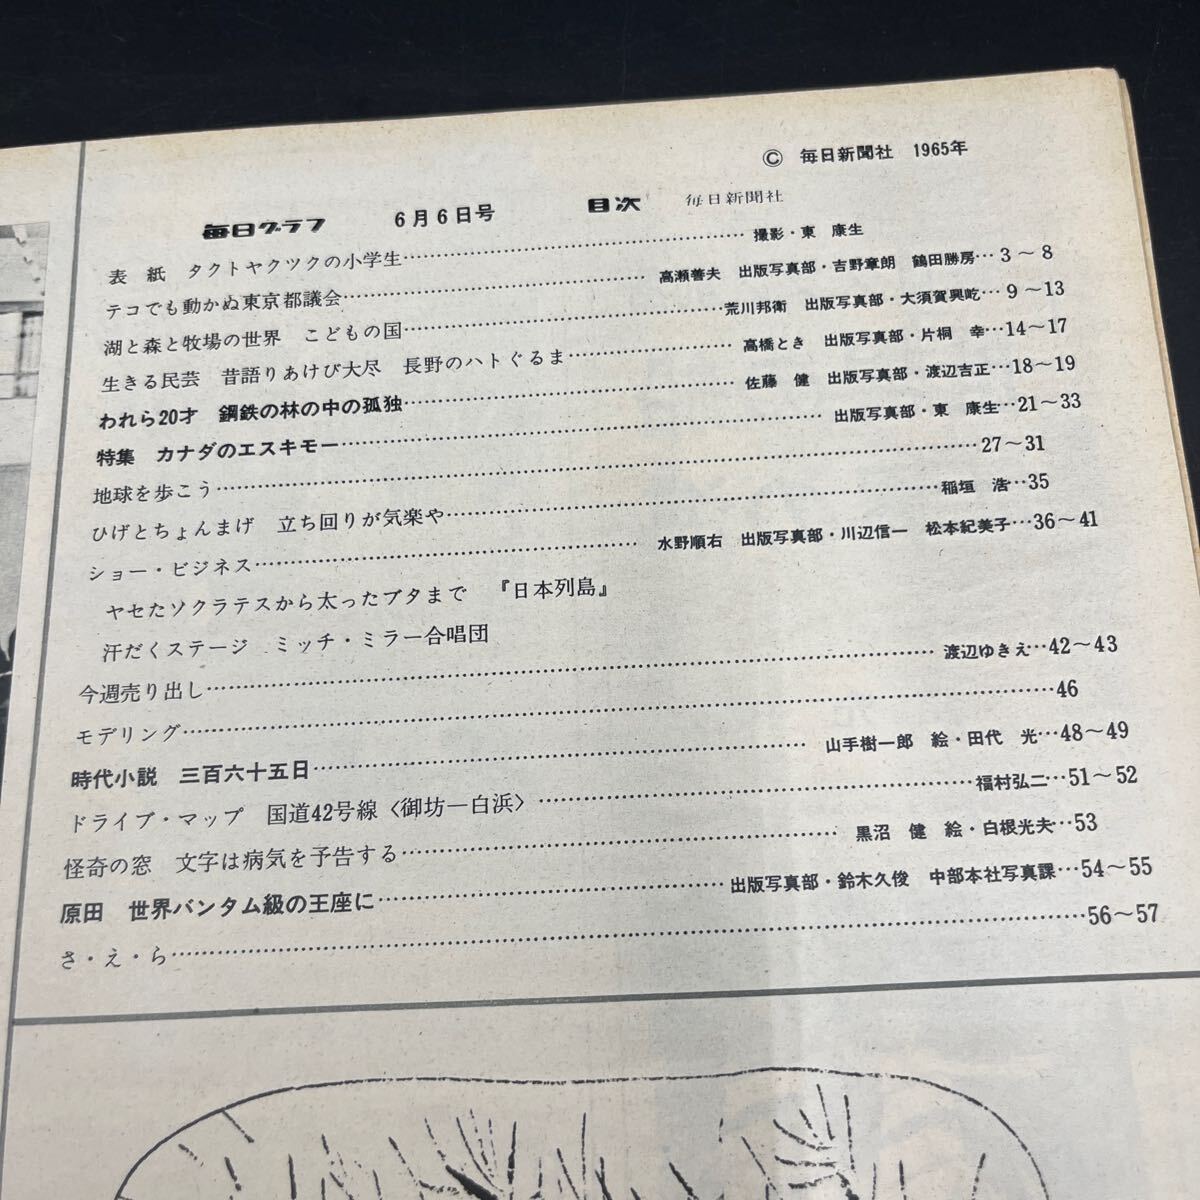 © 毎日新聞社 1965年
毎日グラフ 6月6日号 目次 毎日新聞社
表紙 タクトヤクツクの小学生……撮影・東 康生
テコでも動かぬ東京都議会……高瀬善夫 出版写真部・吉野章朗 鶴田勝房…3～8
湖と森と牧場の世界 こどもの国……荒川邦衛 出版写真部・大須賀興屹…9～13
生きる民芸 昔語りあけび大尽 長野のハトぐるま……高橋とき 出版写真部・片桐 幸…14～17
われら20才 鋼鉄の林の中の孤独……佐藤 健 出版写真部・渡辺吉正…18～19
特集 カナダのエスキモー……出版写真部・東 康生…21～33
地球を歩こう……27～31
ひげとちょんまげ 立ち回りが気楽や……稲垣 浩…35
ショー・ビジネス……水野順右 出版写真部・川辺信一 松本紀美子…36～41
ヤセたソクラテスから太ったブタまで 『日本列島』
汗だくステージ ミッチ・ミラー合唱団
今週売り出し……渡辺ゆきえ…42～43
モデリング……46
時代小説 三百六十五日……山手樹一郎 絵・田代 光…48～49
ドライブ・マップ 国道42号線〈御坊―白浜〉……福村弘二…51～52
怪奇の窓 文字は病気を予告する……黒沼 健 絵・白根光夫…53
原田 世界バンタム級の王座に……出版写真部・鈴木久俊 中部本社写真課…54～55
さ・え・ら……56～57